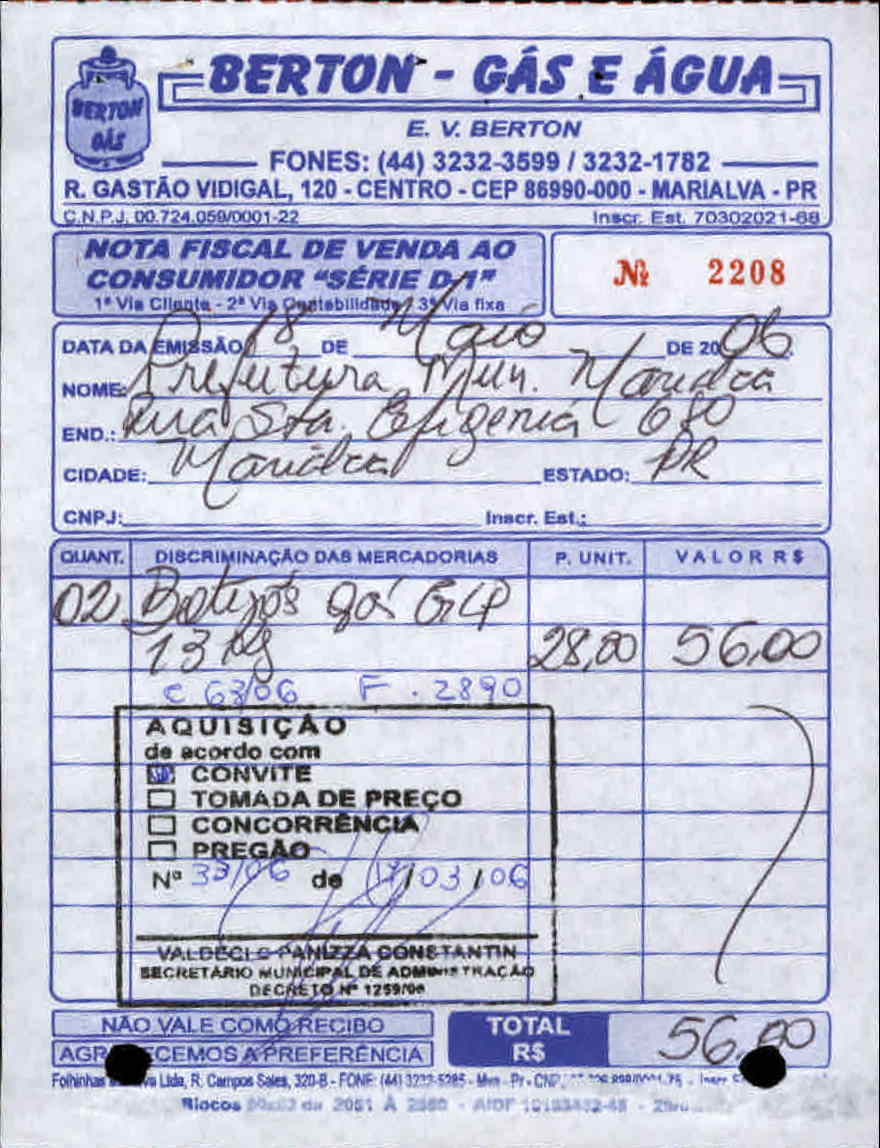 BERTON GÁS
BERTON - GÁS E ÁGUA
E. V. BERTON
FONES: (44) 3232-3599 / 3232-1782
R. GASTÃO VIDIGAL, 120 - CENTRO - CEP 86990-000 - MARIALVA - PR
C.N.P.J. 00.724.059/0001-22 Inscr. Est. 70302021-68
NOTA FISCAL DE VENDA AO
CONSUMIDOR "SÉRIE D-1"
1ª Via Cliente - 2ª Via Contabilidade - 3ª Via fixa
Nº 2208
DATA DA EMISSÃO 18 DE Maio DE 2006
NOME: Prefeitura Mun. Marialva
END.: Rua Sta. Efigenia 680
CIDADE: Marialva ESTADO: PR
CNPJ: Inscr. Est.:
QUANT. DISCRIMINAÇÃO DAS MERCADORIAS P. UNIT. VALOR R$
02 Botijós gás GLP
13 kg 28,00 56,00
C 63/06 F. 2890
AQUISIÇÃO
de acordo com
CONVITE
TOMADA DE PREÇO
CONCORRÊNCIA
PREGÃO
Nº 33/06 de 17/03/06
VALDECI PANIZZA CONSTANTIN
SECRETÁRIO MUNICIPAL DE ADMINISTRAÇÃO
DECRETO Nº 1259/06
NÃO VALE COMO RECIBO
AGRADECEMOS A PREFERÊNCIA
TOTAL R$ 56,00
Folhinhas Ltda, R. Campos Sales, 320-B - FONE: (44) 3232-5285 - Pr - CNPJ
Blocos de 2051 A